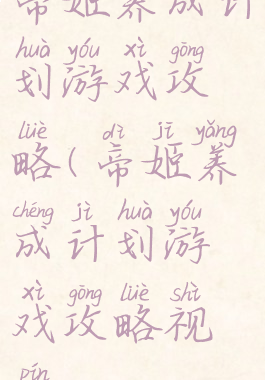 帝姬养成计
huà yóu xì gōng
划游戏攻
lüè dì jī yǎng
略(帝姬养
chéng jì huà yóu
成计划游
xì gōng lüè shì
戏攻略视
pín